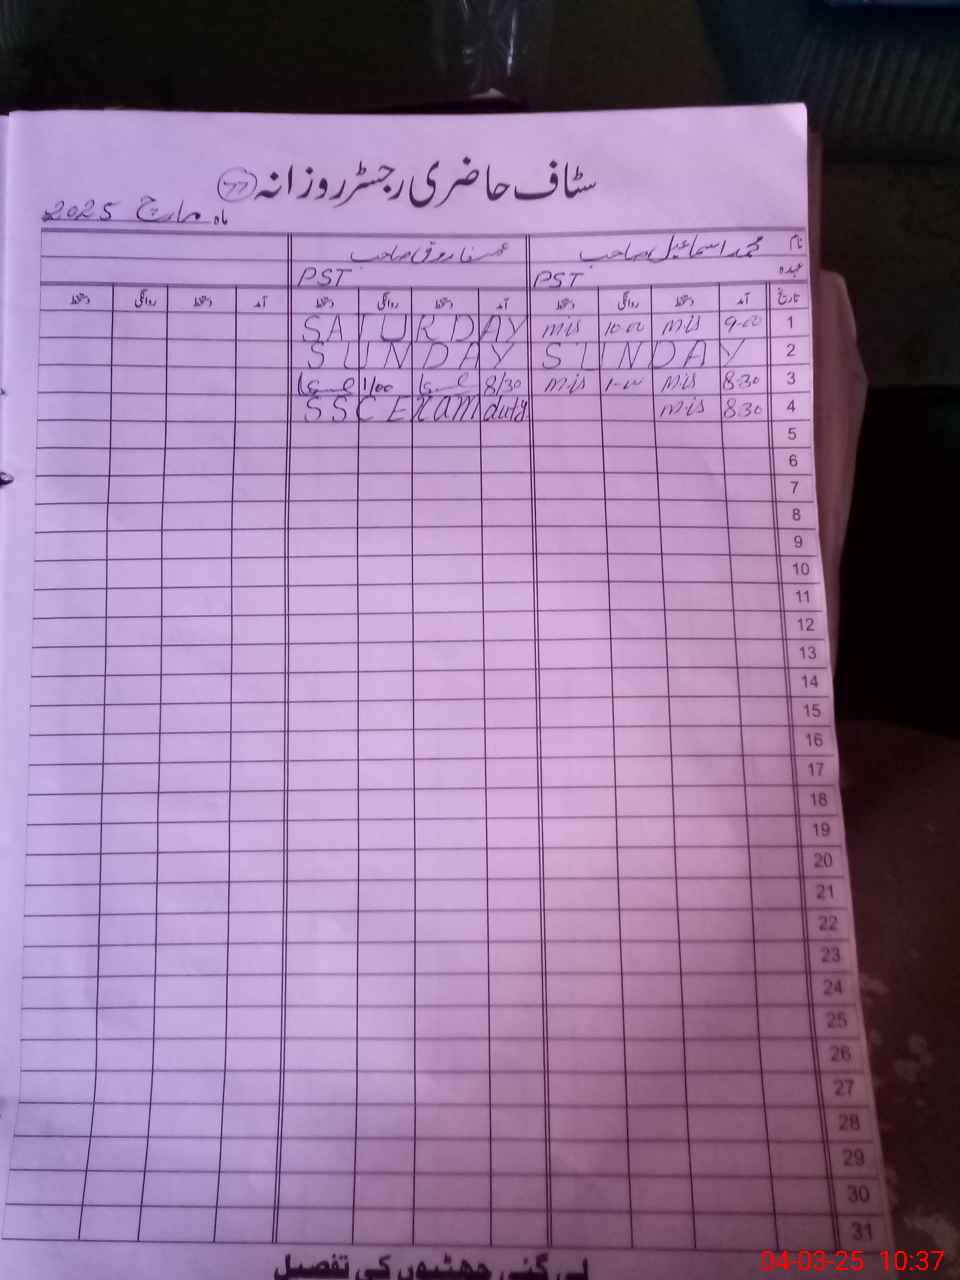 سٹاف حاضری رجسٹر روزانہ 77
ماہ مارچ 2025
نام محمد اسماعیل صاحب صاحب
عہدہ PST PST
تاریخ آمد دستخط روانگی دستخط آمد دستخط روانگی دستخط آمد دستخط روانگی دستخط
1 9-00 mis 10-00 mis SATURDAY
2 SUNDAY SUNDAY
3 8-30 mis 1-00 mis 8/30 1/00
4 8-30 mis SSC Exam duty
5
6
7
8
9
10
11
12
13
14
15
16
17
18
19
20
21
22
23
24
25
26
27
28
29
30
31
لی گئی چھٹیوں کی تفصیل
04-03-25 10:37